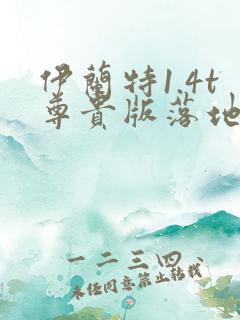 伊蘭特1.4t
尊貴版落地
一二三四、
未经同意禁止转载